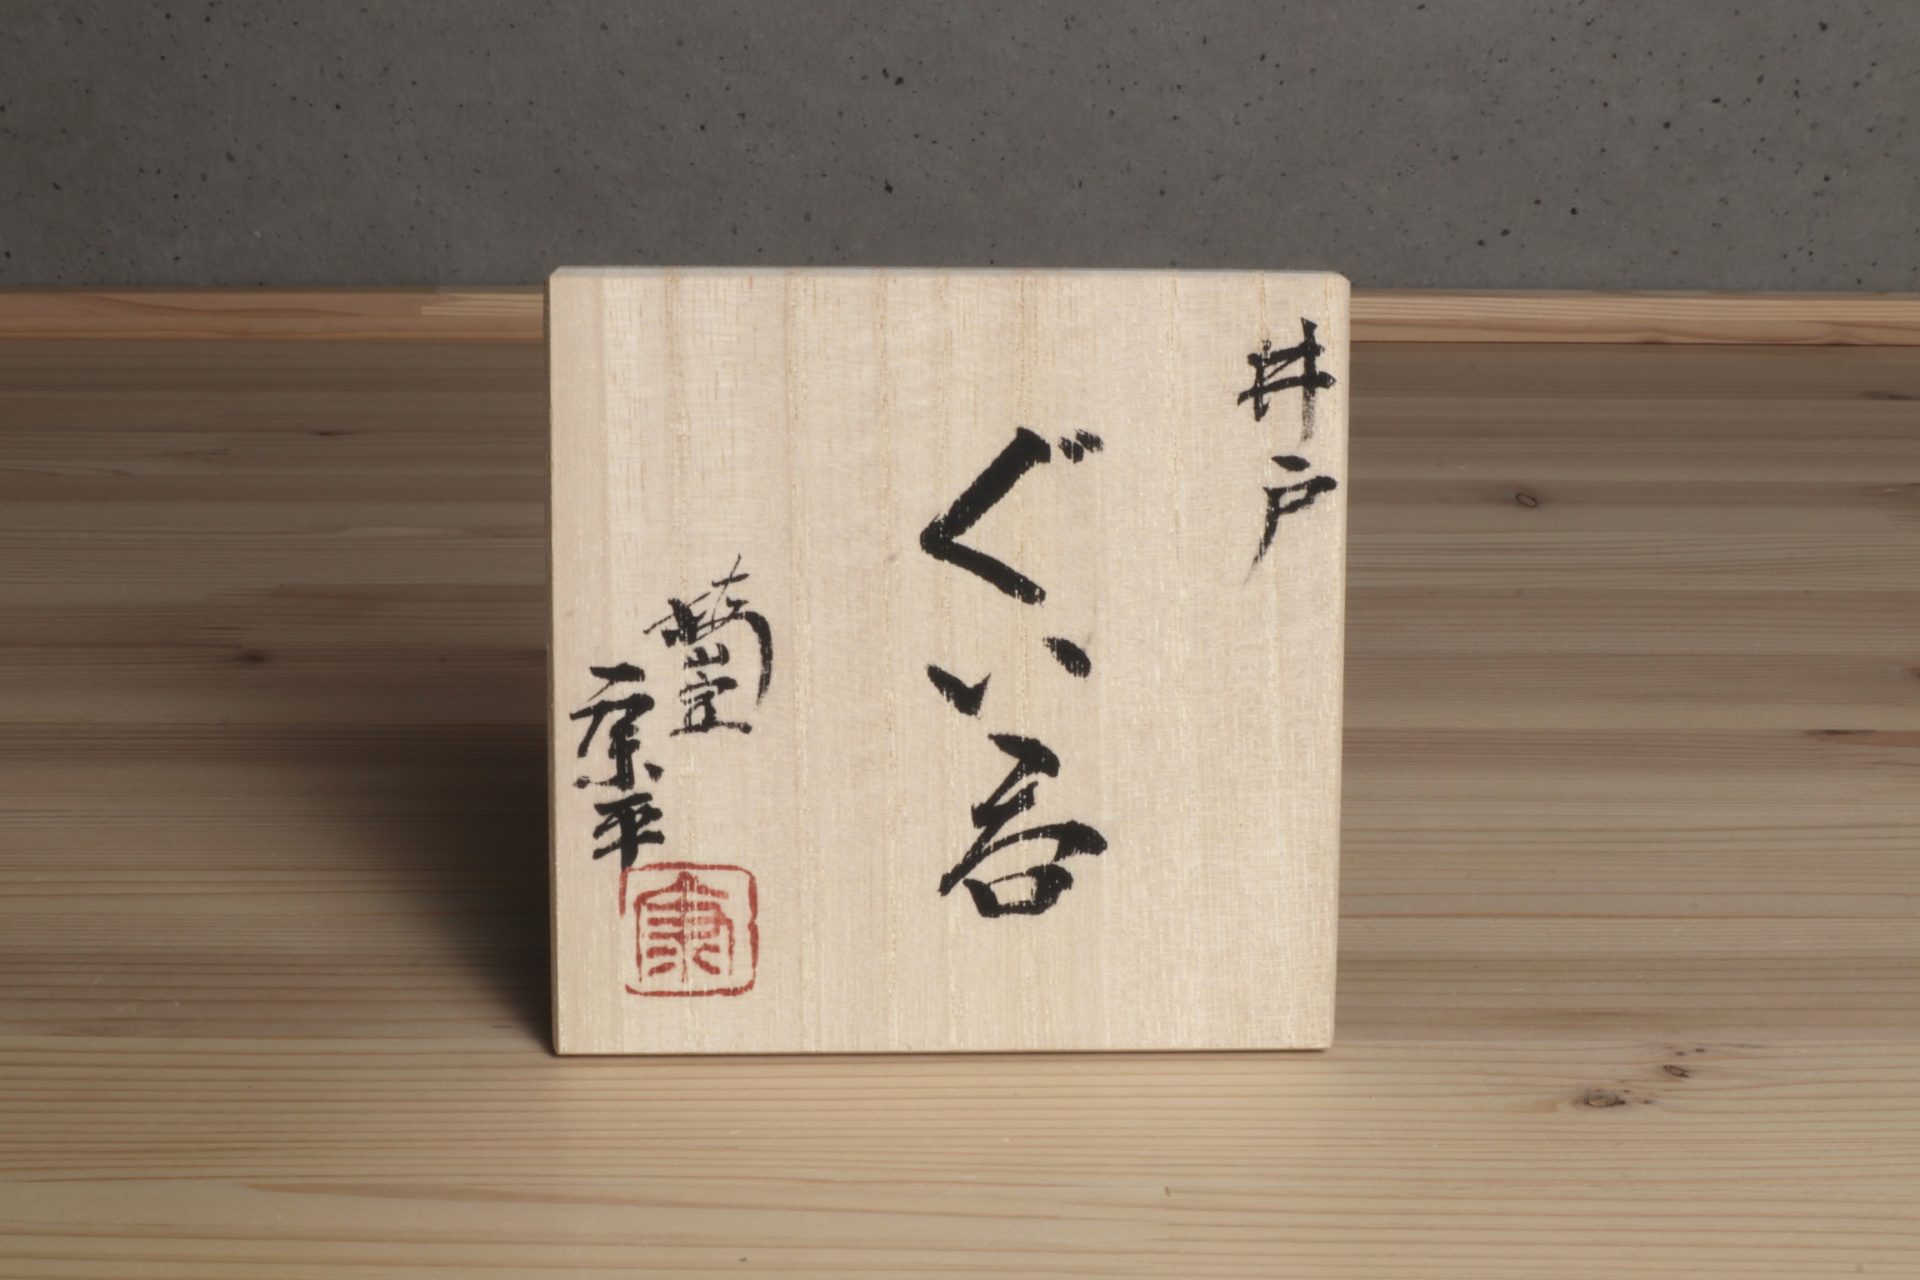 井戸
ぐい呑
康平
康